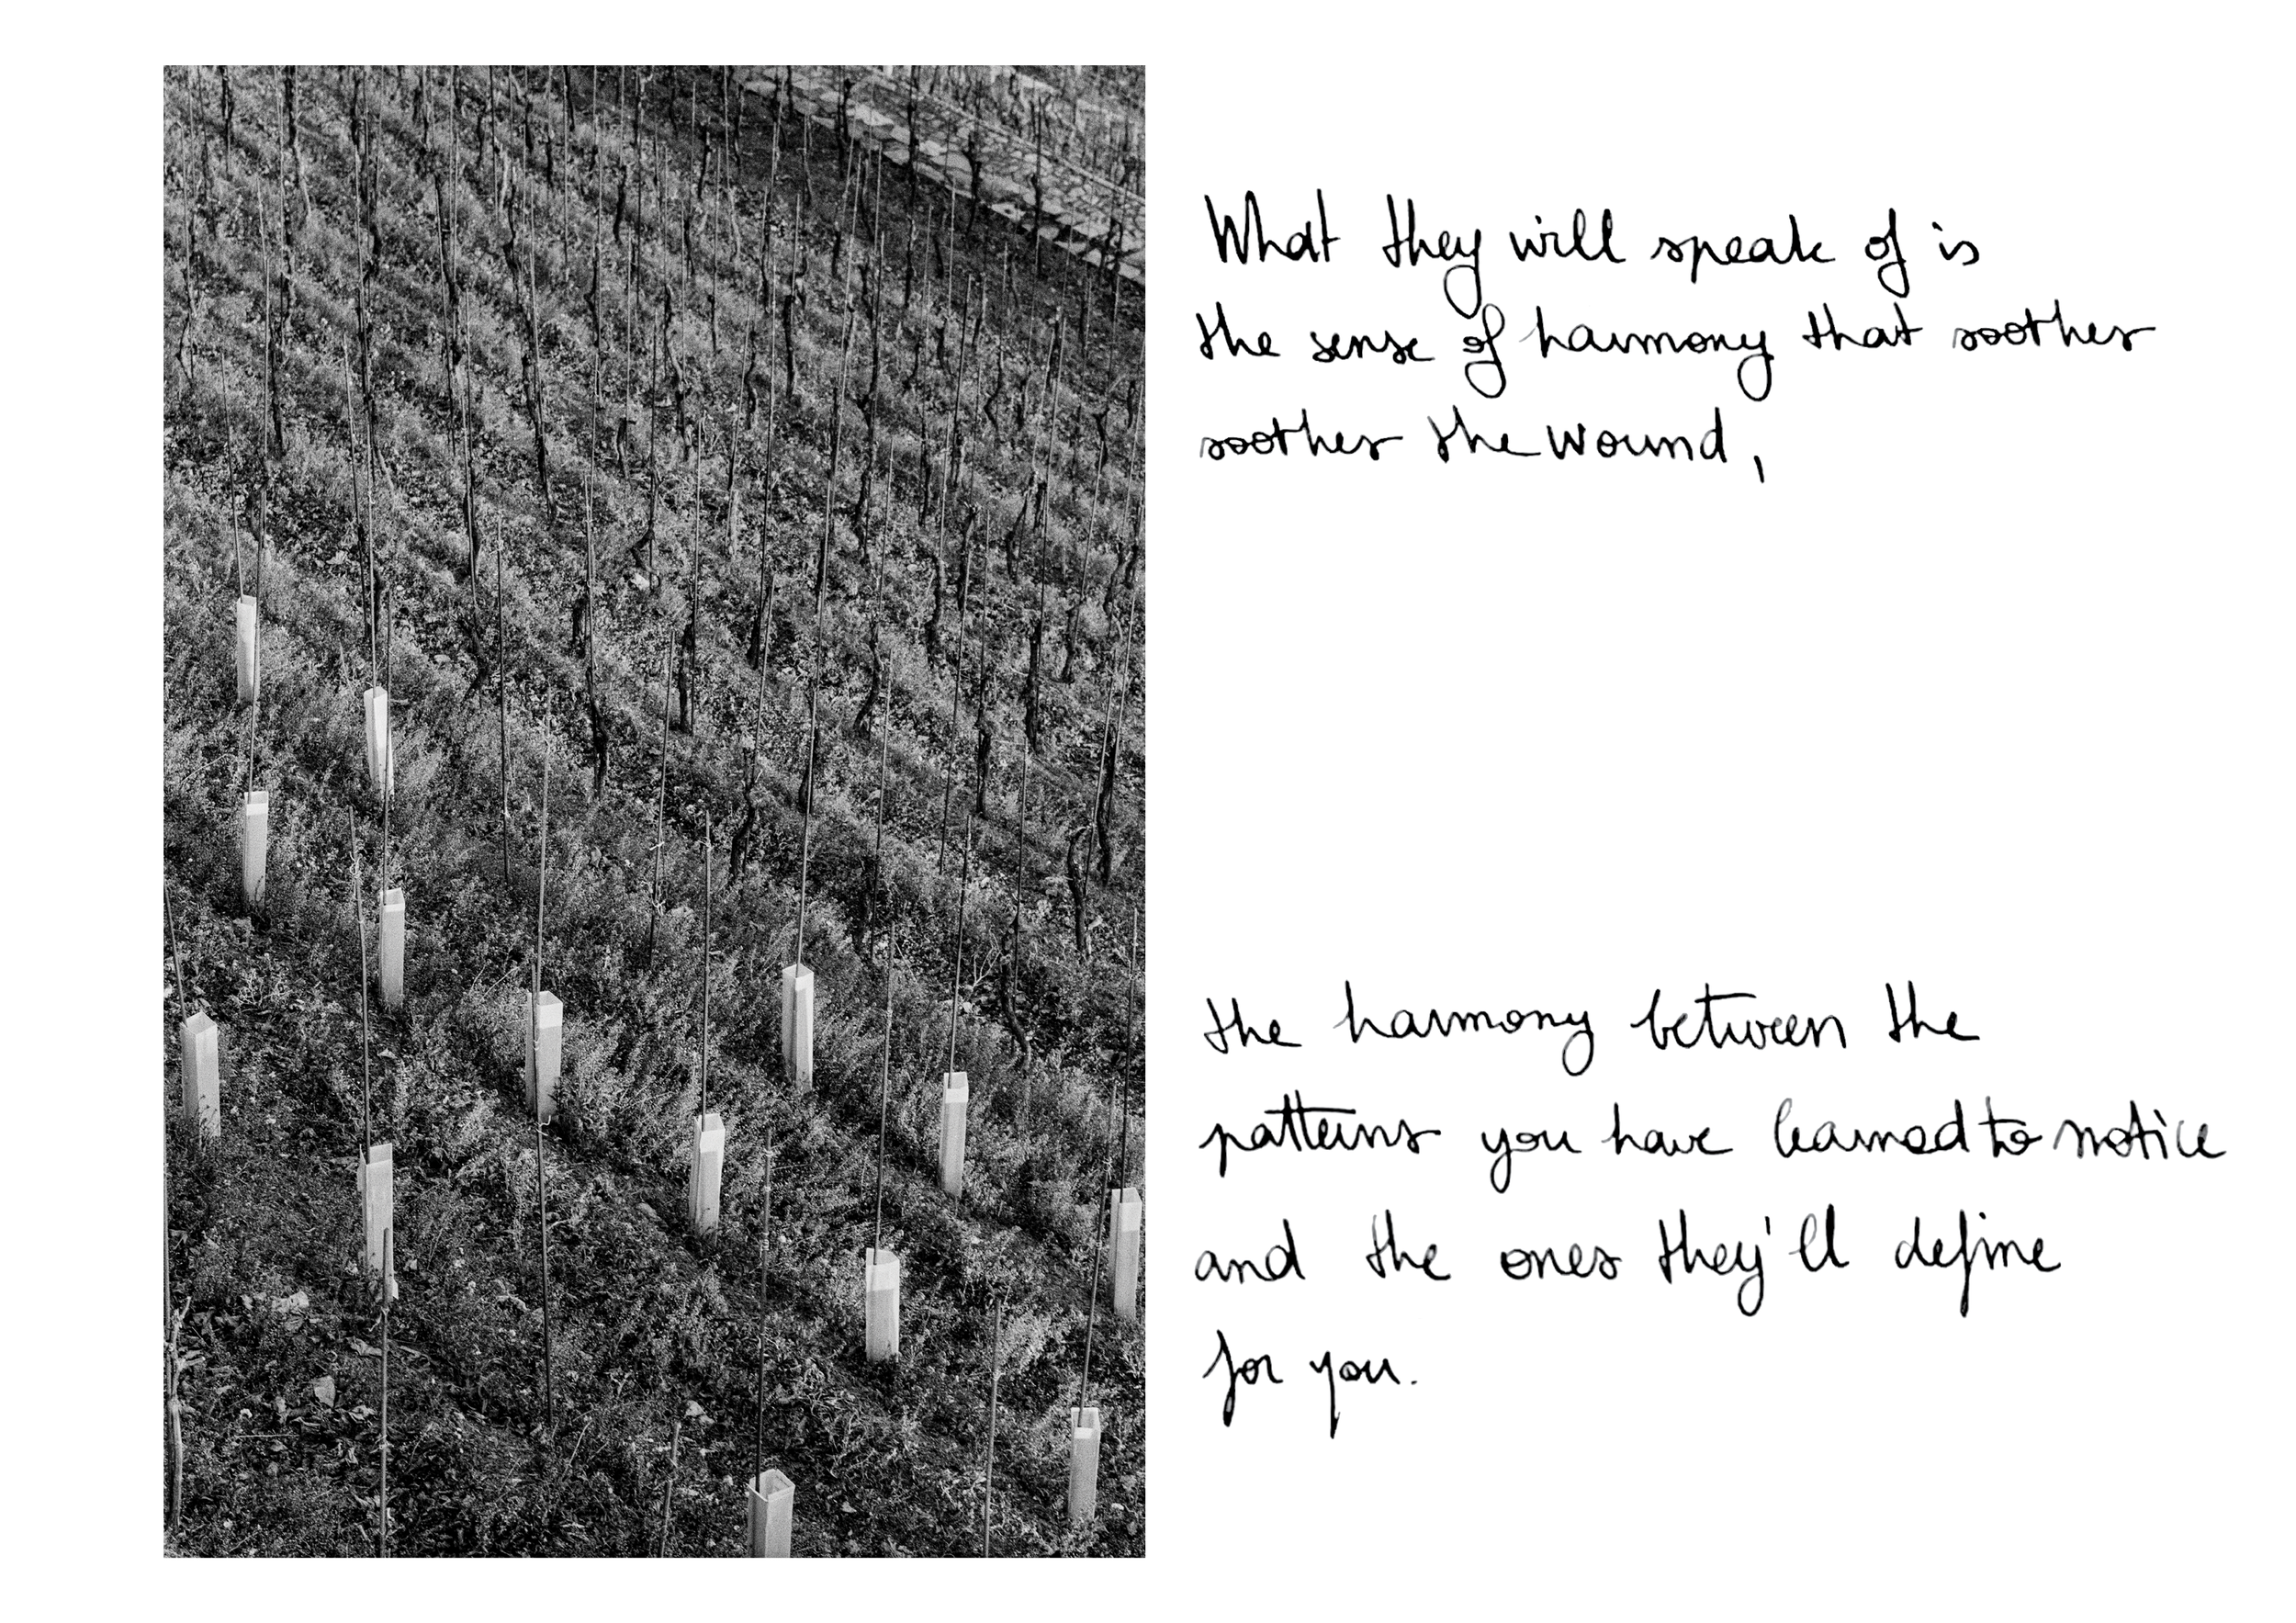 What they will speak of is
the sense of harmony that soothes
soothes the wound,
the harmony between the
patterns you have learned to notice
and the ones they'll define
for you.